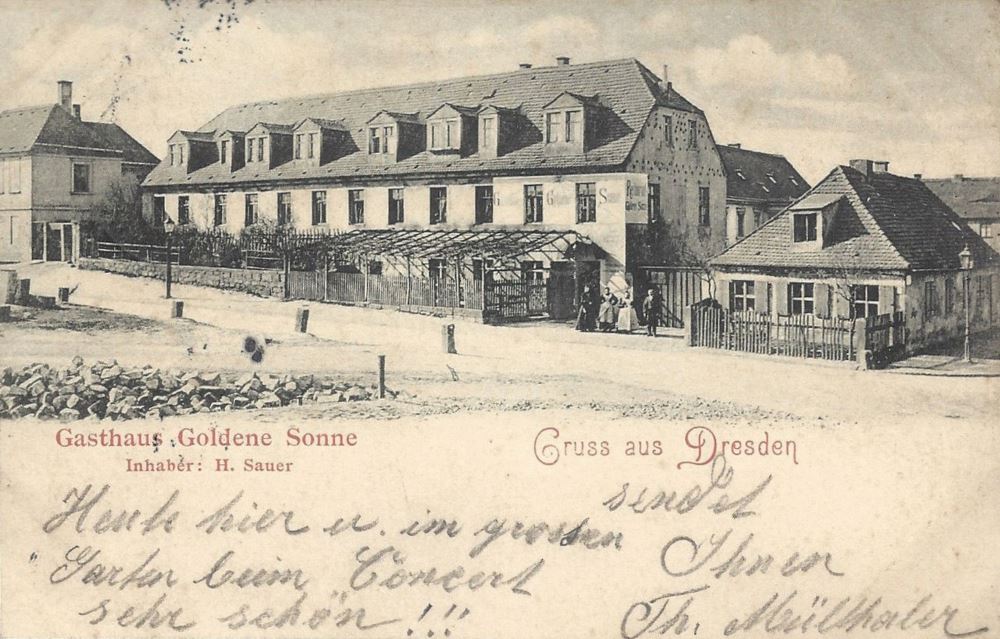 Gasthaus Goldene Sonne
Inhaber: H. Sauer
Gruss aus Dresden
Heute hier u. im grossen
Garten beim Concert
sehr schön!!!
sendet
Ihnen
Th. Mülthaler